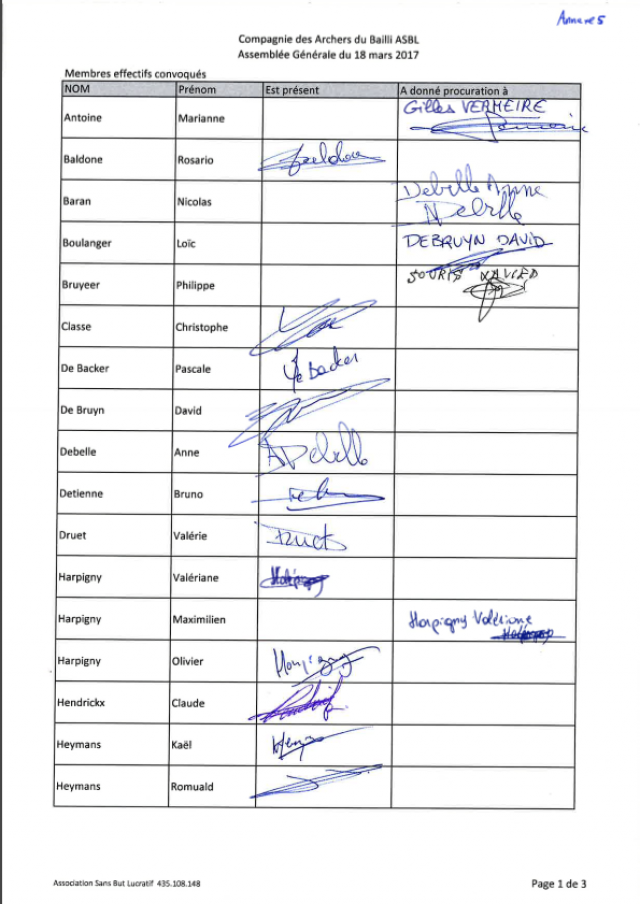 Annexe 5
Compagnie des Archers du Bailli ASBL
Assemblée Générale du 18 mars 2017
Membres effectifs convoqués
NOM Prénom Est présent A donné procuration à
Gilles VERMEIRE
Antoine Marianne
Baldone Rosario
Debelle Anne
Baran Nicolas ADebelle
Boulanger Loïc DEBRUYN DAVID
SOURIS XAVIER
Bruyeer Philippe
Classe Christophe
De Backer Pascale De Backer
De Bruyn David
Debelle Anne ADebelle
Detienne Bruno
Druet Valérie Druet
Harpigny Valériane Harpigny
Harpigny Maximilien Harpigny Valériane
Harpigny
Harpigny Olivier Harpigny
Hendrickx Claude
Heymans Kaël
Heymans Romuald
Association Sans But Lucratif 435.108.148 Page 1 de 3